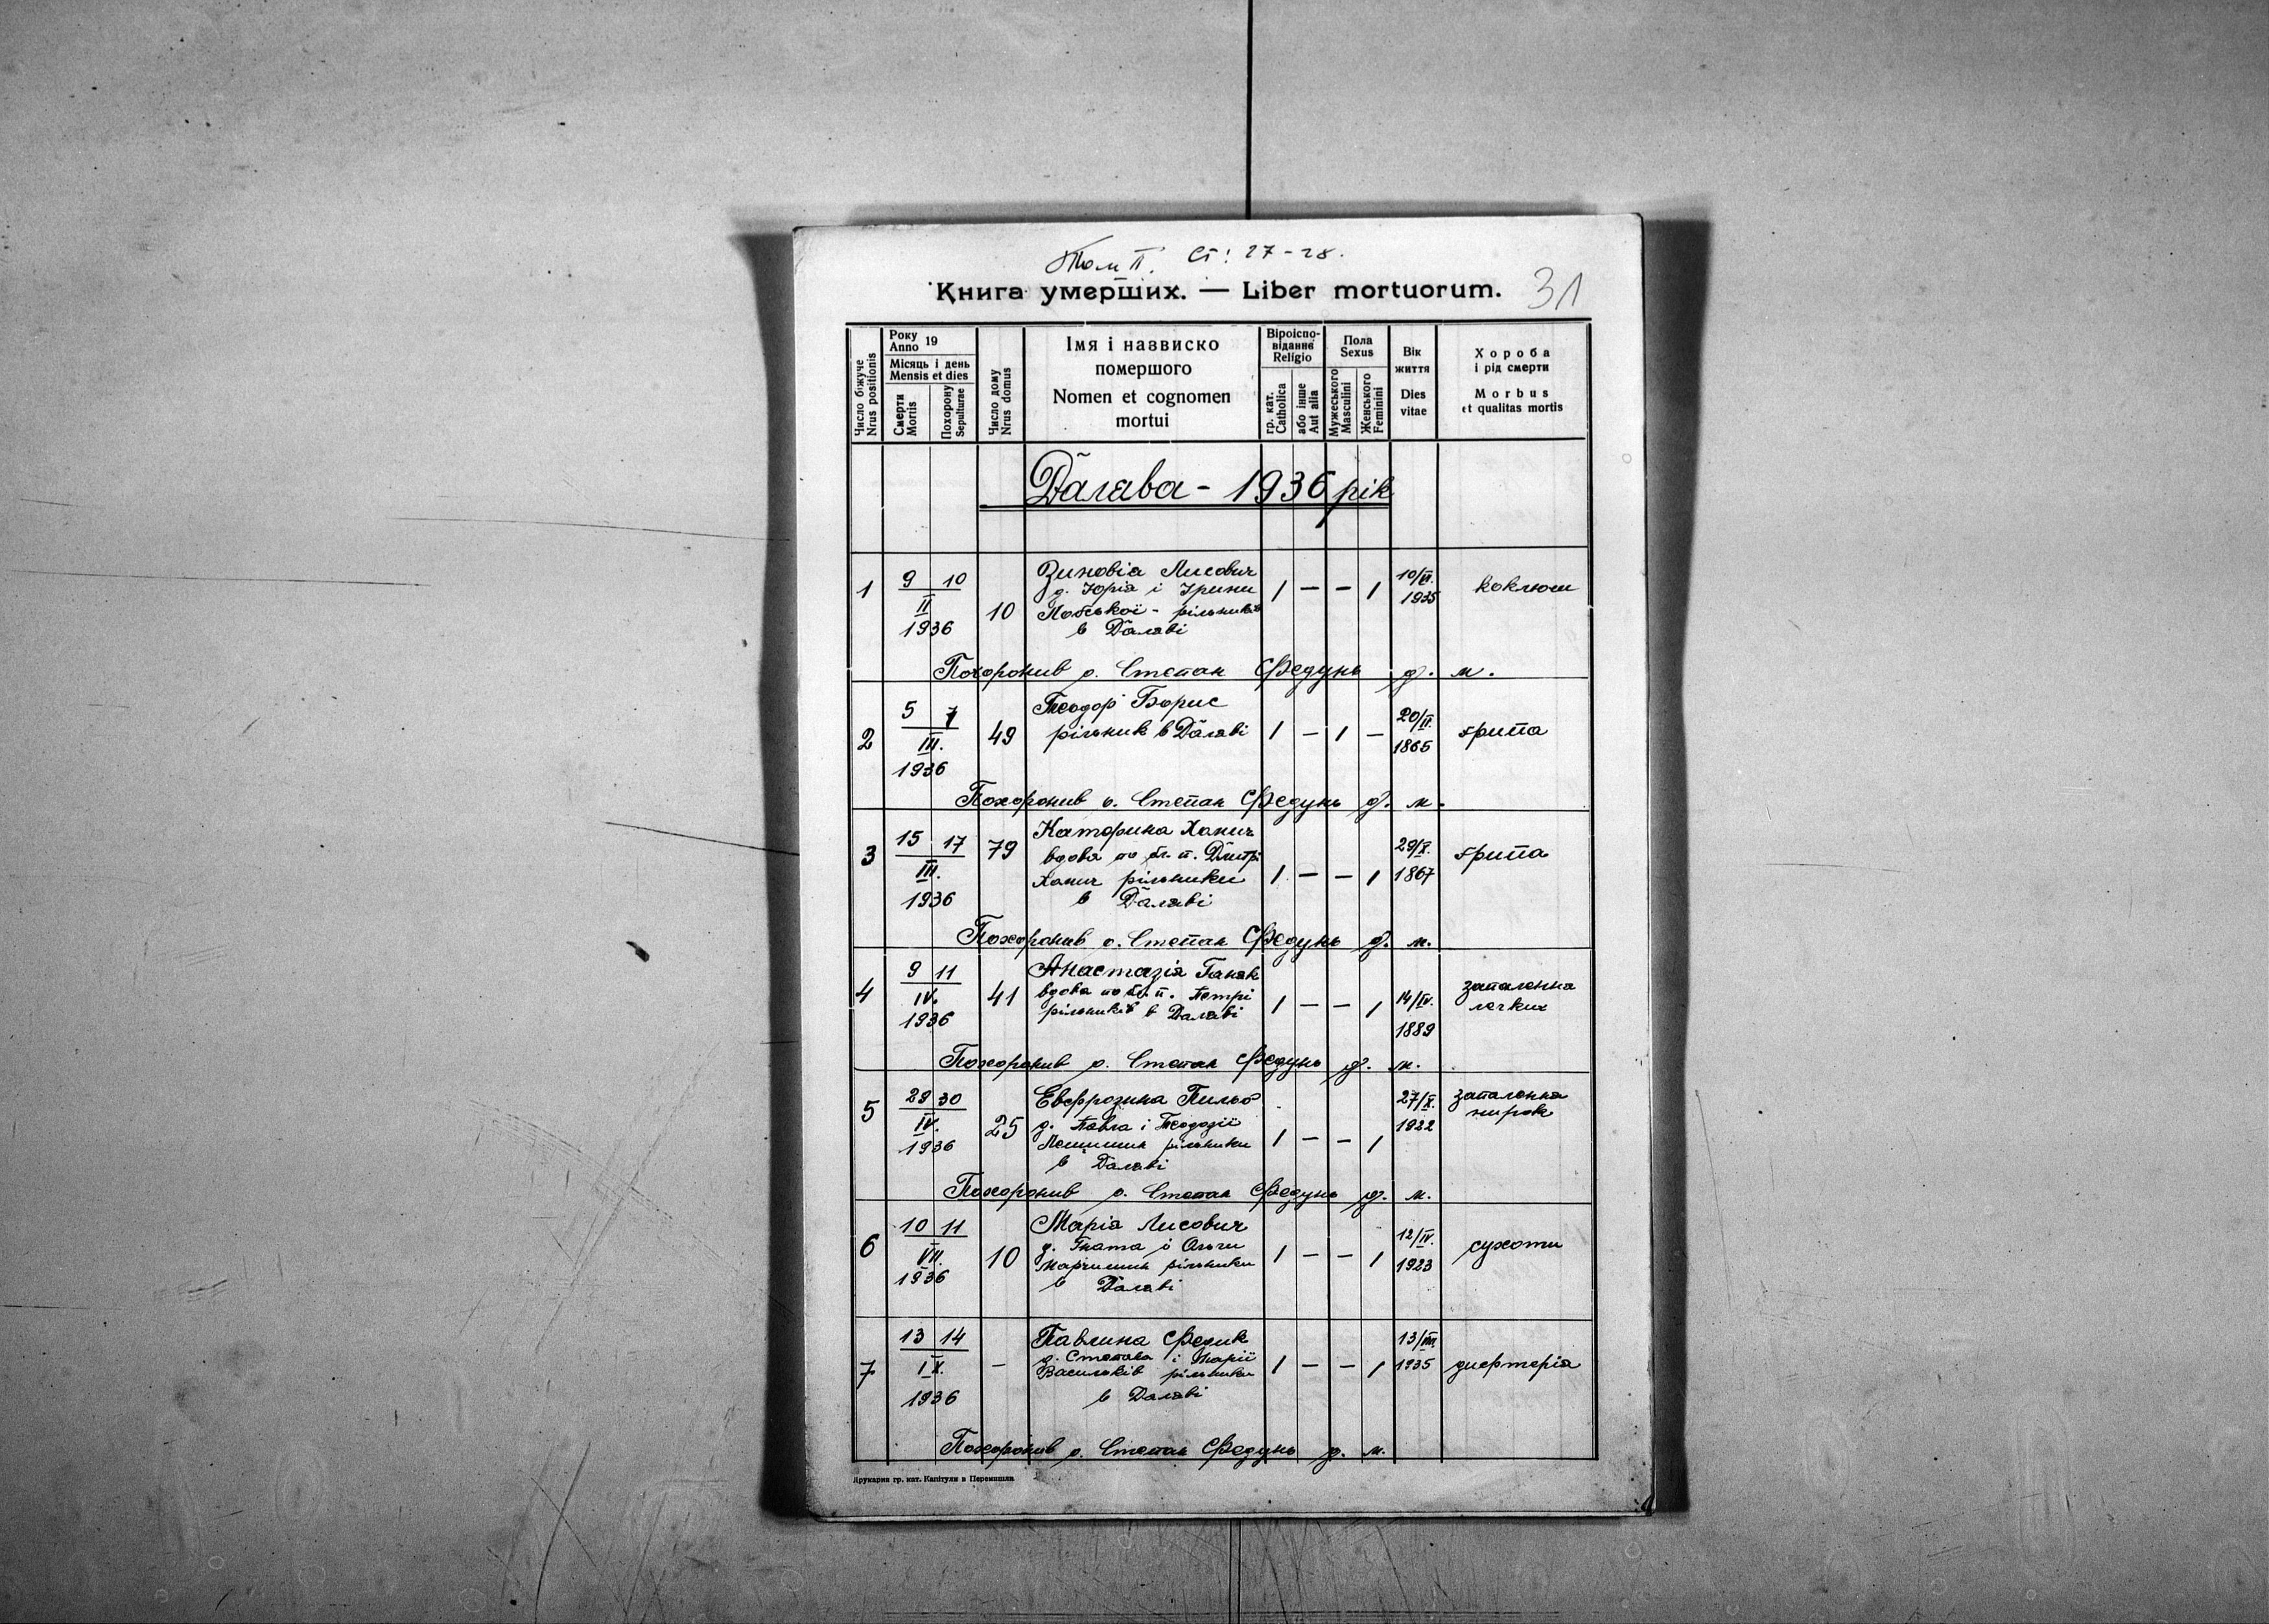 Том II. ст: 27-28.
Книга умерших. — Liber mortuorum. 31
Число біжуче
Nrus positionis
Року
Anno 19
Місяць і день
Mensis et dies
Смерти
Mortis
Похорону
Sepulturae
Число дому
Nrus domus
Імя і назвиско
помершого
Nomen et cognomen
mortui
Віроіспо-
відання
Religio
гр. кат.
Catholica
або інше
Aut alia
Пола
Sexus
Мужеського
Masculini
Женського
Feminini
Вік
життя
Dies
vitae
Хороба
і рід смерти
Morbus
et qualitas mortis
Далава - 1936 рік
1 9 10 II 1936 10
Зиновіа Лисович
д. Юрія і Ірини
рільників
в Далаві
1 — — 1 10/VI. 1935 коклюш
Похоронив о. Степан Федунь д. м.
2 5 7 III. 1936 49
Теодор Борис
рільник в Далаві
1 — 1 — 20/II. 1865 ґрипа
Похоронив о. Степан Федунь д. м.
3 15 17 III. 1936 79
Катерина Ханич
вдова по бл. п. Дмитрі
Ханич рільники
в Далаві
1 — — 1 29/X. 1867 ґрипа
Похоронив о. Степан Федунь д. м.
4 9 11 IV. 1936 41
Анастазія Ганак
вдова по бл. п. Петрі
рільників в Далаві
1 — — 1 14/IV. 1889 запалення
легких
Похоронив о. Степан Федунь д. м.
5 29 30 IV. 1936 25
Евфрозина Пильо
д. Павла і Теодозії
Лешишин рільники
в Далаві
1 — — 1 27/X. 1922 запалення
нирок
Похоронив о. Степан Федунь д. м.
6 10 11 VII. 1936 10
Марія Лисович
д. Гната і Ольги
Марчишин рільники
в Далаві
1 — — 1 12/IV. 1923 сухоти
7 13 14 IX. 1936 —
Павлина Федик
д. Степана і Марії
Васильків рільники
в Далаві
1 — — 1 13/VIII 1935 дифтерія
Похоронив о. Степан Федунь д. м.
Друкарня гр. кат. Капітули в Перемишли